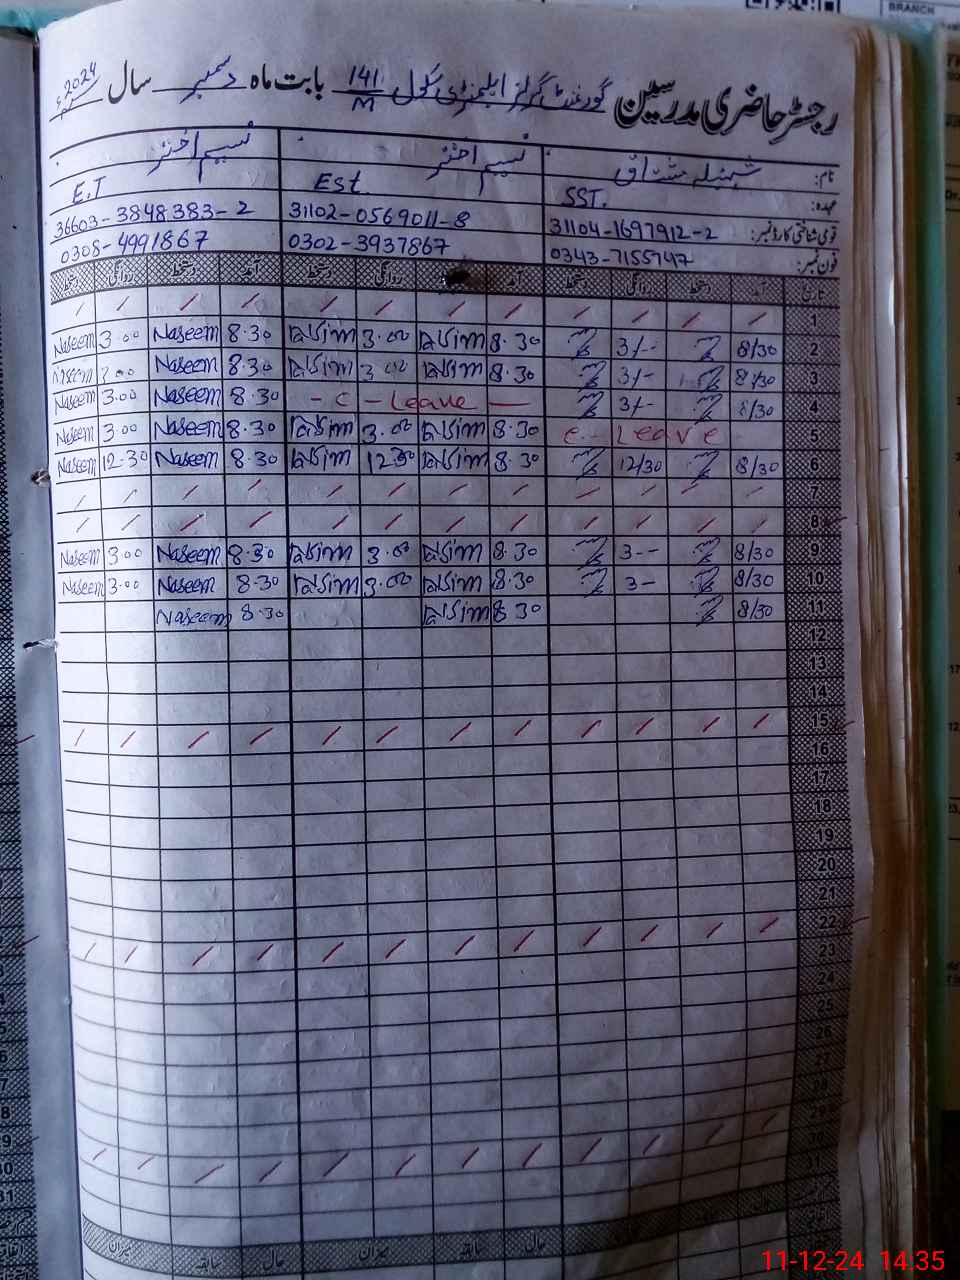 BRANCH
رجسٹر حاضری مدرسین گورنمنٹ گرلز ایلیمنٹری سکول 141/M بابت ماہ دسمبر سال 2024ء
نام: شہنیلہ مشتاق نسیم اختر نسیم اختر
عہدہ: SST. Est. E.T
قومی شناختی کارڈ نمبر: 31104-1697912-2 31102-0569011-8 36603-3848383-2
فون نمبر: 0343-7155947 0302-3937867 0308-4991867
تاریخ آمد دستخط روانگی دستخط آمد دستخط روانگی دستخط آمد دستخط روانگی دستخط
1 / / / / / / / / / / / /
2 8/30 3/-- 8.30 3.00 8.30 Naseem 3.00 Naseem
3 8/30 3/- 8.30 3.00 8.30 Naseem 3.00 Naseem
4 8/30 3/- - C - Leave - 8.30 Naseem 3.00 Naseem
5 c - Leave 8.30 3.00 8.30 Naseem 3.00 Naseem
6 8/30 12/30 8.30 12.30 8.30 Naseem 12.30 Naseem
7 / / / / / / / / / / / /
8 / / / / / / / / / / / /
9 8/30 3-- 8.30 3.00 8.30 Naseem 3.00 Naseem
10 8/30 3- 8.30 3.00 8.30 Naseem 3.00 Naseem
11 8/30 8.30 8.30 Naseem
12
13
14
15 / / / / / / / / / / / /
16
17
18
19
20
21
22 / / / / / / / / / / / /
23
24
25
26
27
28
29 / / / / / / / / / / / /
30
31
حال سابقہ میزان حال سابقہ میزان
11-12-24 14:35